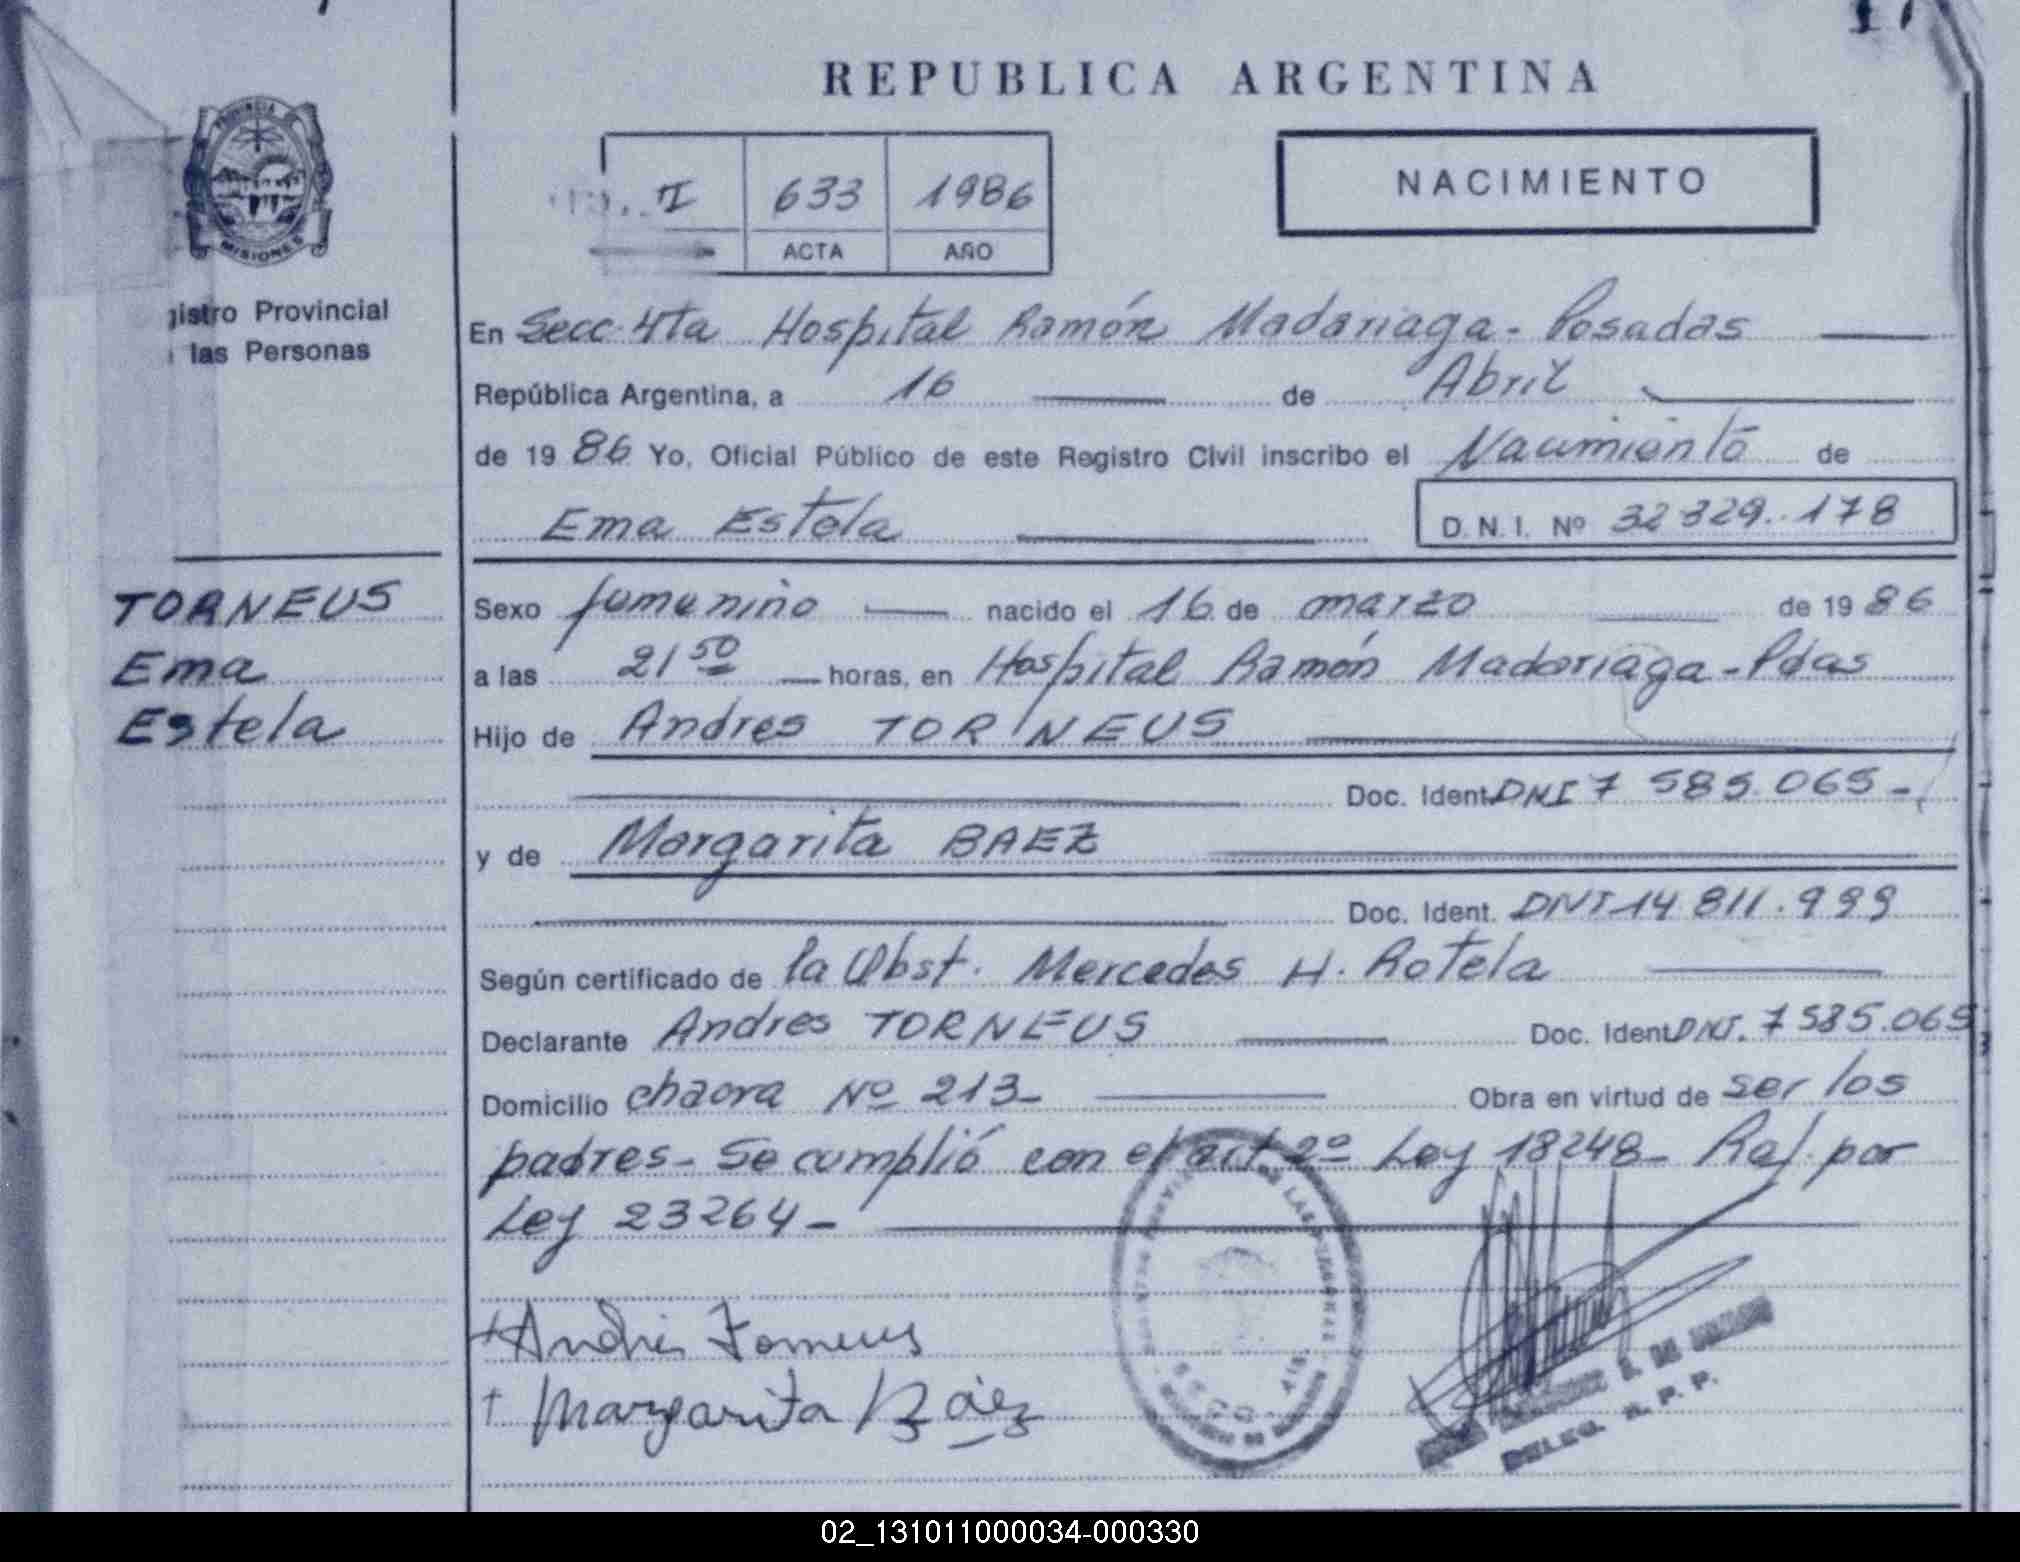 REPUBLICA ARGENTINA
PROVINCIA DE
MISIONES
I 633 1986
ACTA AÑO
NACIMIENTO
gistro Provincial
las Personas
En Secc. 4ta Hospital Ramón Madariaga - Posadas
República Argentina, a 16 de Abril
de 1986 Yo, Oficial Público de este Registro Civil inscribo el Nacimiento de
Ema Estela D.N.I. Nº 32 329.178
TORNEUS
Ema
Estela
Sexo femenino nacido el 16 de marzo de 1986
a las 21 50 horas, en Hospital Ramón Madariaga - Pdas
Hijo de Andres TORNEUS
Doc. Ident. DNI 7 585.065-
y de Margarita BAEZ
Doc. Ident. DNI 14 811.999
Según certificado de la Obst. Mercedes H. Rotela
Declarante Andres TORNEUS Doc. Ident. DNI. 7 585.065
Domicilio chacra Nº 213- Obra en virtud de ser los
padres - Se cumplió con el art 2º Ley 18248- Raf. por
Ley 23264-
Andrés Torneus
Margarita Báez
DELEG. R. P. P.
02_131011000034-000330